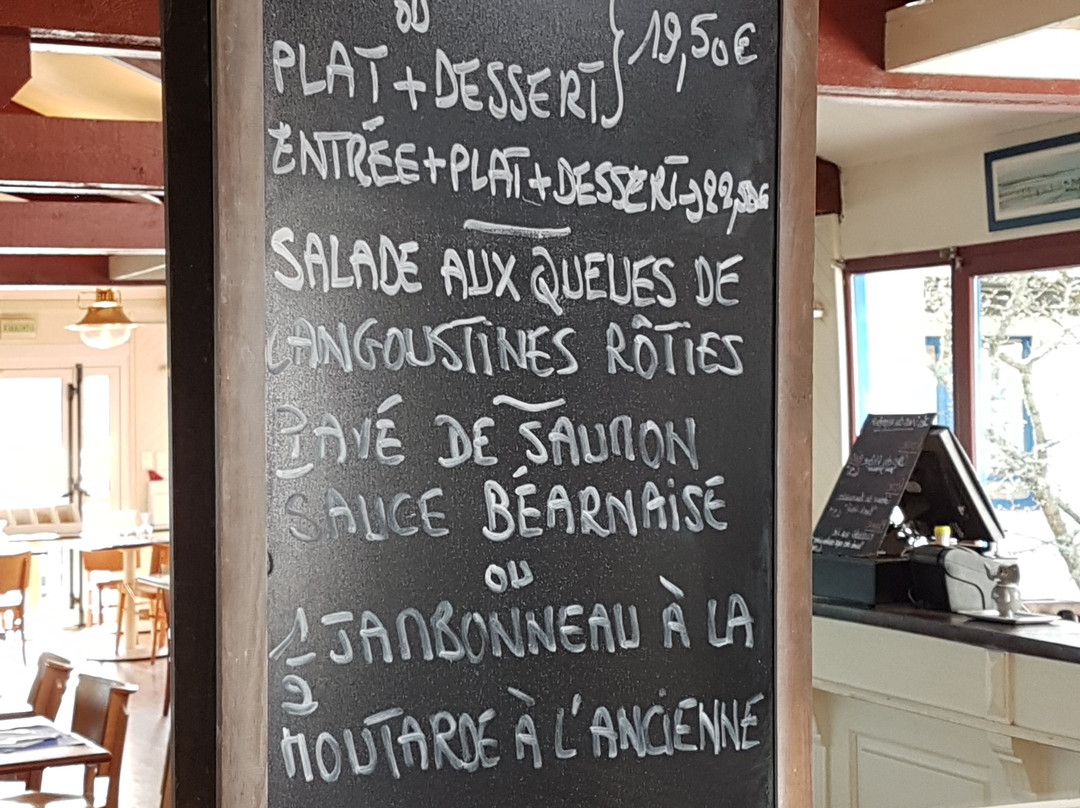 OU
PLAT + DESSERT } 19,50€
ENTRÉE + PLAT + DESSERT → 22,50€
SALADE AUX QUEUES DE
LANGOUSTINES RÔTIES
PAVÉ DE SAUMON
SAUCE BÉARNAISE
OU
1/2 JAMBONNEAU À LA
MOUTARDE À L'ANCIENNE